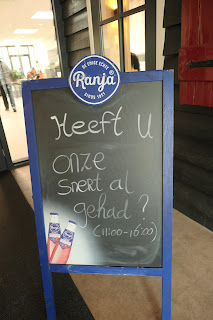 DE ENIGE ECHTE
Ranja
SINDS 1921
Heeft U
onze
snert al
gehad ?
(11:00-16:00)